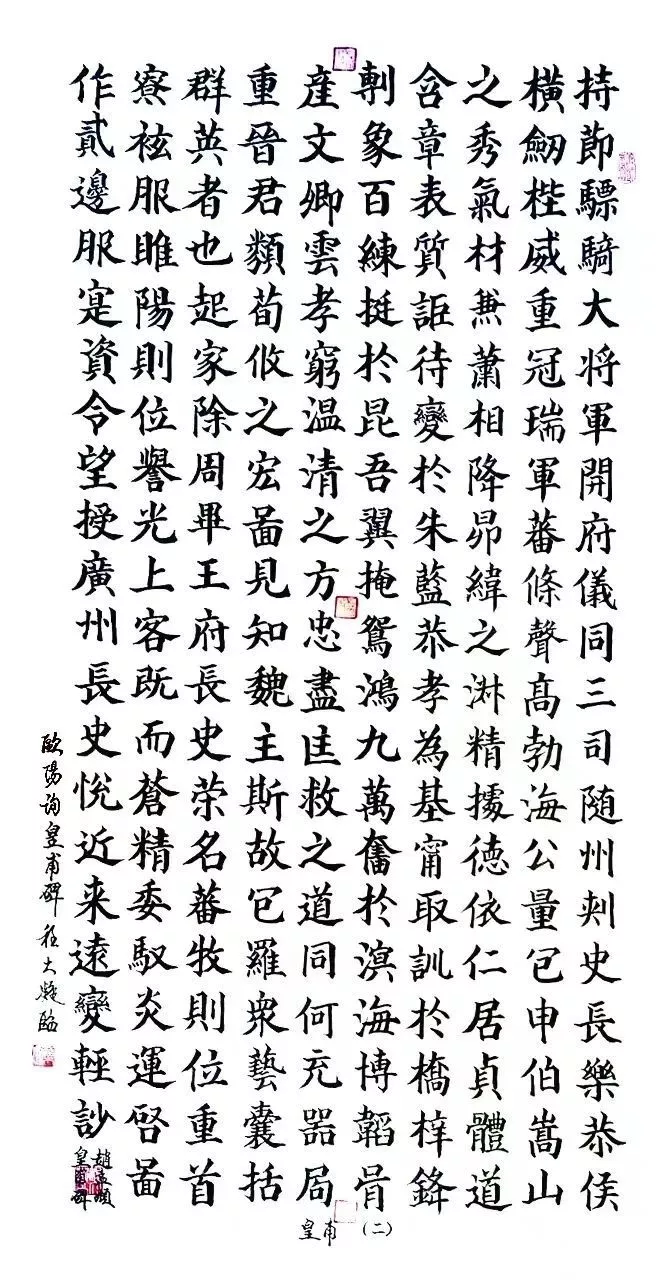 持節驃騎大将軍開府儀同三司随州刾史長樂恭侯
橫劒桎威重冠瑞軍蕃條聲高勃海公量包申伯嵩山
之秀氣材兼蕭相降昴緯之淑精據徳依仁居貞體道
含章表質詎待變於朱藍恭孝為基甯取訓於橋梓鋒
剸象百練挺於昆吾翼掩鴛鴻九萬奮於溟海博韜骨
産文卿雲孝窮温清之方忠盡匡救之道同何充器局
重晉君類荀攸之宏啚見知魏主斯故包羅衆藝囊括
群英者也起家除周畢王府長史荣名蕃牧則位重首
寮袨服睢陽則位譽光上客既而蒼精委馭炎運啓啚
作貳邊服寔資令望授廣州長史悅近来遠變輕訬
歐陽詢皇甫碑程大凝臨
皇甫（二）